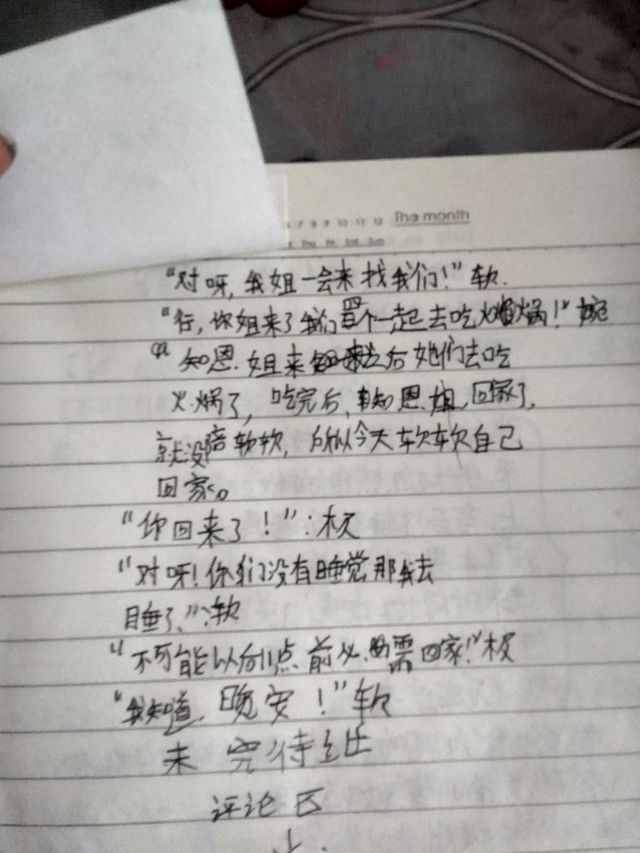 6 7 8 9 10 11 12 The month
Thu Fri Sat Sun
"对呀,我姐一会来找我们!"软.
"行,你姐来了我们四个一起去吃火锅!"婉
知恩.姐来之后她们去吃
火锅了,吃完后,知恩.姐.回家了,
就没陪软软,所以今天软软自己
回家。
"你回来了!":权
"对呀!你们没有睡觉那我去
睡了,":软
"不可能以后11点前必需回家!"权
"我知道.晚安!"软
未完待续
评论区